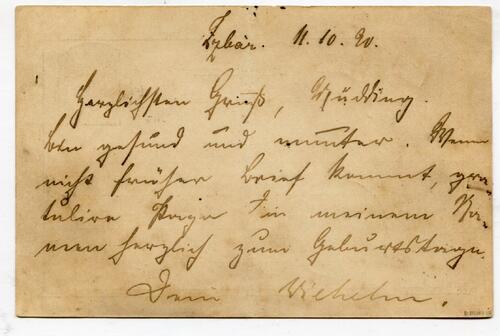 11.10.90.
Herzlichsten Gruß,
bin gesund und munter. Wenn
nicht früher Brief kommt, gra-
tulire Papa in meinem Na-
men herzlich zum Geburtstage.
Dein Wilhelm.